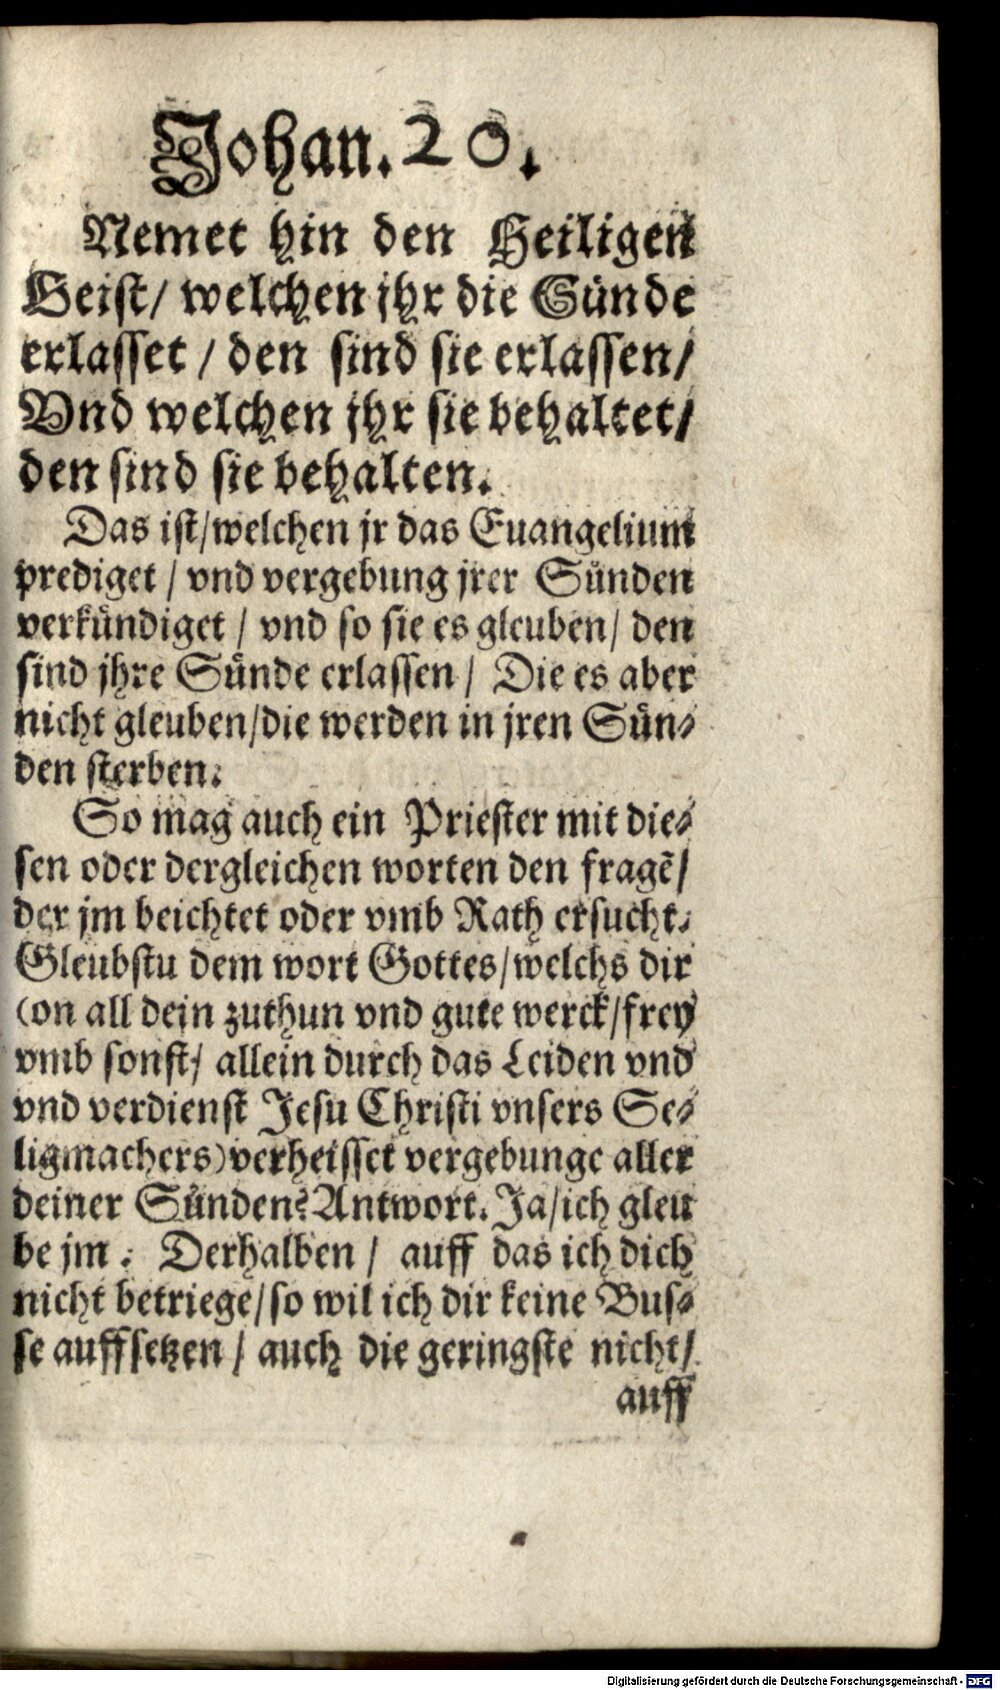 Johan. 20.
Nemet hin den Heiligen
Geist/ welchen jhr die Sünde
erlasset / den sind sie erlassen/
Vnd welchen jhr sie behaltet/
den sind sie behalten.
Das ist/welchen jr das Euangelium
prediget / vnd vergebung jrer Sünden
verkündiget / vnd so sie es gleuben/ den
sind jhre Sünde erlassen / Die es aber
nicht gleuben/die werden in jren Sün-
den sterben.
So mag auch ein Priester mit die-
sen oder dergleichen worten den fragẽ/
der jm beichtet oder vmb Rath ersucht.
Gleubstu dem wort Gottes/welchs dir
(on all dein zuthun vnd gute werck/frey
vmb sonst/ allein durch das Leiden vnd
vnd verdienst Jesu Christi vnsers Se-
ligmachers)verheisset vergebunge aller
deiner Sünden? Antwort. Ja/ich gleu
be jm. Derhalben / auff das ich dich
nicht betriege/so wil ich dir keine Bus-
se auffsetzen / auch die geringste nicht/
auff
Digitalisierung gefördert durch die Deutsche Forschungsgemeinschaft - DFG